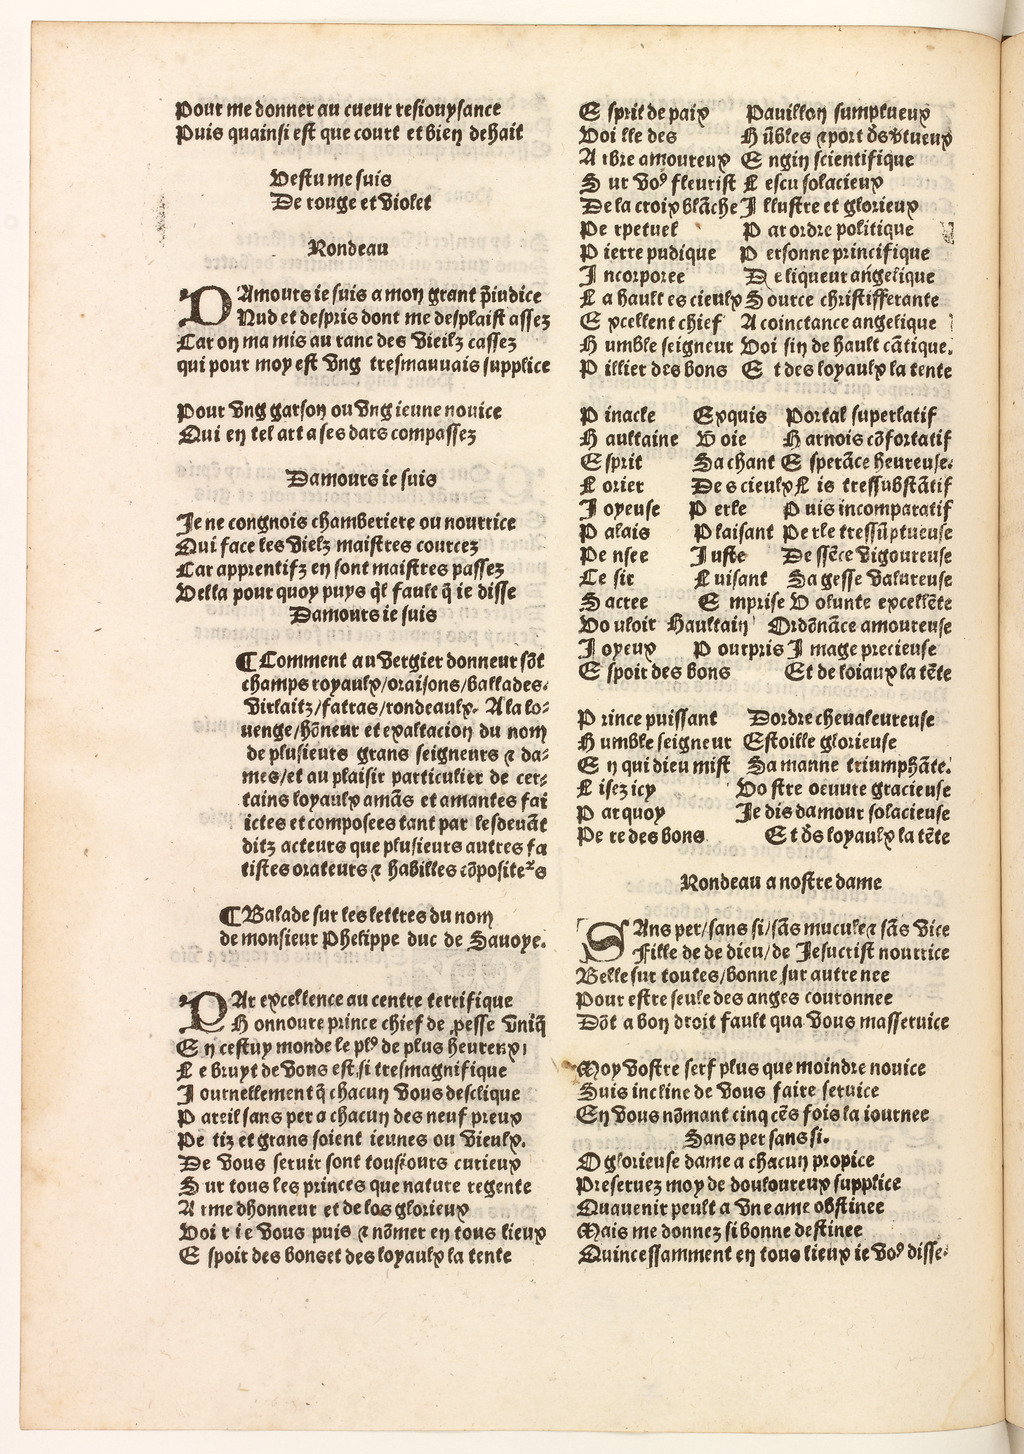 Pour me donner au cueur resiouysance
Puis quainsi est que court et bien dehait
Vestu me suis
De rouge et violet
Rondeau
DAmours ie suis a mon grant p̃iudice
Nud et despris dont me desplaist assez
Car on ma mis au ranc des vieilz cassez
qui pour moy est vng tresmauuais supplice
Pour vng garson ou vng ieune nouice
Qui en tel art a ses dars compassez
Damours ie suis
Je ne congnois chamberiere ou nourrice
Qui face les vielz maistres courcez
Car apprentifz en sont maistres passez
Vella pour quoy puys q̃l fault q̃ ie disse
Damours ie suis
¶ Comment au vergier donneur sõt
champs royaulx/oraisons/ballades.
virlaitz/fatras/rondeaulx. A la lo-
uenge/hõneur et exaltacion du nom
de plusieurs grans seigneurs ⁊ da-
mes/et au plaisir particulier de cer-
tains loyaulx amãs et amantes fai
ictes et composees tant par lesdeuãt
ditz acteurs que plusieurs autres fa
tistes orateurs ⁊ habilles cõpositeꝛs
¶ Balade sur les lettres du nom
de monsieur Phelippe duc de Sauoye.
PAr excellence au centre terrifique
H onnoure prince chief de ꝓesse vniq̃
E n cestuy monde le plꝰ de plus heureux
L e bruyt de vous est si tresmagnifique
J ournellement q̃ chacun vous desclique
P areil sans per a chacun des neuf preux
Pe tiz et grans soient ieunes ou vieulx.
De vous seruir sont tousiours curieux
S ur tous les princes que nature regente
A rme dhonneur et de los glorieux
Voi r ie vous puis ⁊ nõmer en tous lieux
E spoir des bons et des loyaulx la tente
E sprit de paix Pauillon sumptueux
Voi lle des Hũbles ⁊ port d̃s ṽtueux
A rbre amoureux E ngin scientifique
S ur voꝰ fleurist L escu solacieux
De la croix blãche J llustre et glorieux
Pe rpetuel P ar ordre politique
P ierre pudique P ersonne principique
J ncorporee De liqueur angelique
L a hault es cieulx S ource christifferante
E xcellent chief A coinctance angelique
H umble seigneur Voi sin de hault cãtique.
P illier des bons E t des loyaulx la tente
P inacle Exquis Portal superlatif
H aultaine V oie H arnois cõfortatif
E sprit Sachant E sperãce heureuse.
L orier Des cieulx L is tressubstãtif
J oyeuse P erle P uis incomparatif
P alais P laisant Pe rle tressũptueuse
Pe nsee J uste De ssẽce vigoureuse
Le sir L uisant Sa gesse valureuse
S acree E mprise V olunte excellẽte
Vo uloir Haultain Ordõnãce amoureuse
J oyeux P ourpris J mage precieuse
E spoir des bons Et de loiaux la tẽte
P rince puissant Dordre cheualeureuse
H umble seigneur Estoille glorieuse
E n qui dieu mist Sa manne triumphãte.
L isez icy Vo stre oeuure gracieuse
P arquoy Je dis damour solacieuse
Pe re des bons Et d̃s loyaulx la tẽte
Rondeau a nostre dame
SAns per/sans si/sãs mucule ⁊ sãs vice
Fille de de dieu/de Jesucrist nourrice
Belle sur toutes/bonne sur autre nee
Pour estre seule des anges couronnee
Dõt a bon droit fault qua vous masseruice
Moy vostre serf plus que moindre nouice
Suis incline de vous faire seruice
En vous nõmant cinq cẽs fois la iournee
Sans per sans si.
O glorieuse dame a chacun propice
Preseruez moy de douloureux supplice
Quauenir peult a vne ame obstinee
Mais me donnez si bonne destinee
Quincessamment en tous lieux ie voꝰ disse.